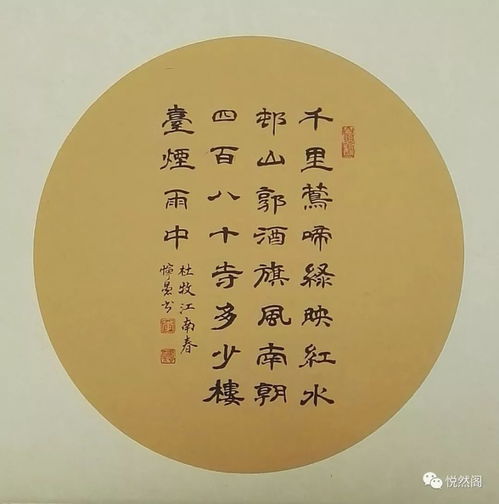 千里鶯啼綠映紅水
邨山郭酒旗風南朝
四百八十寺多少樓
臺煙雨中
杜牧江南春
书
悦然阁